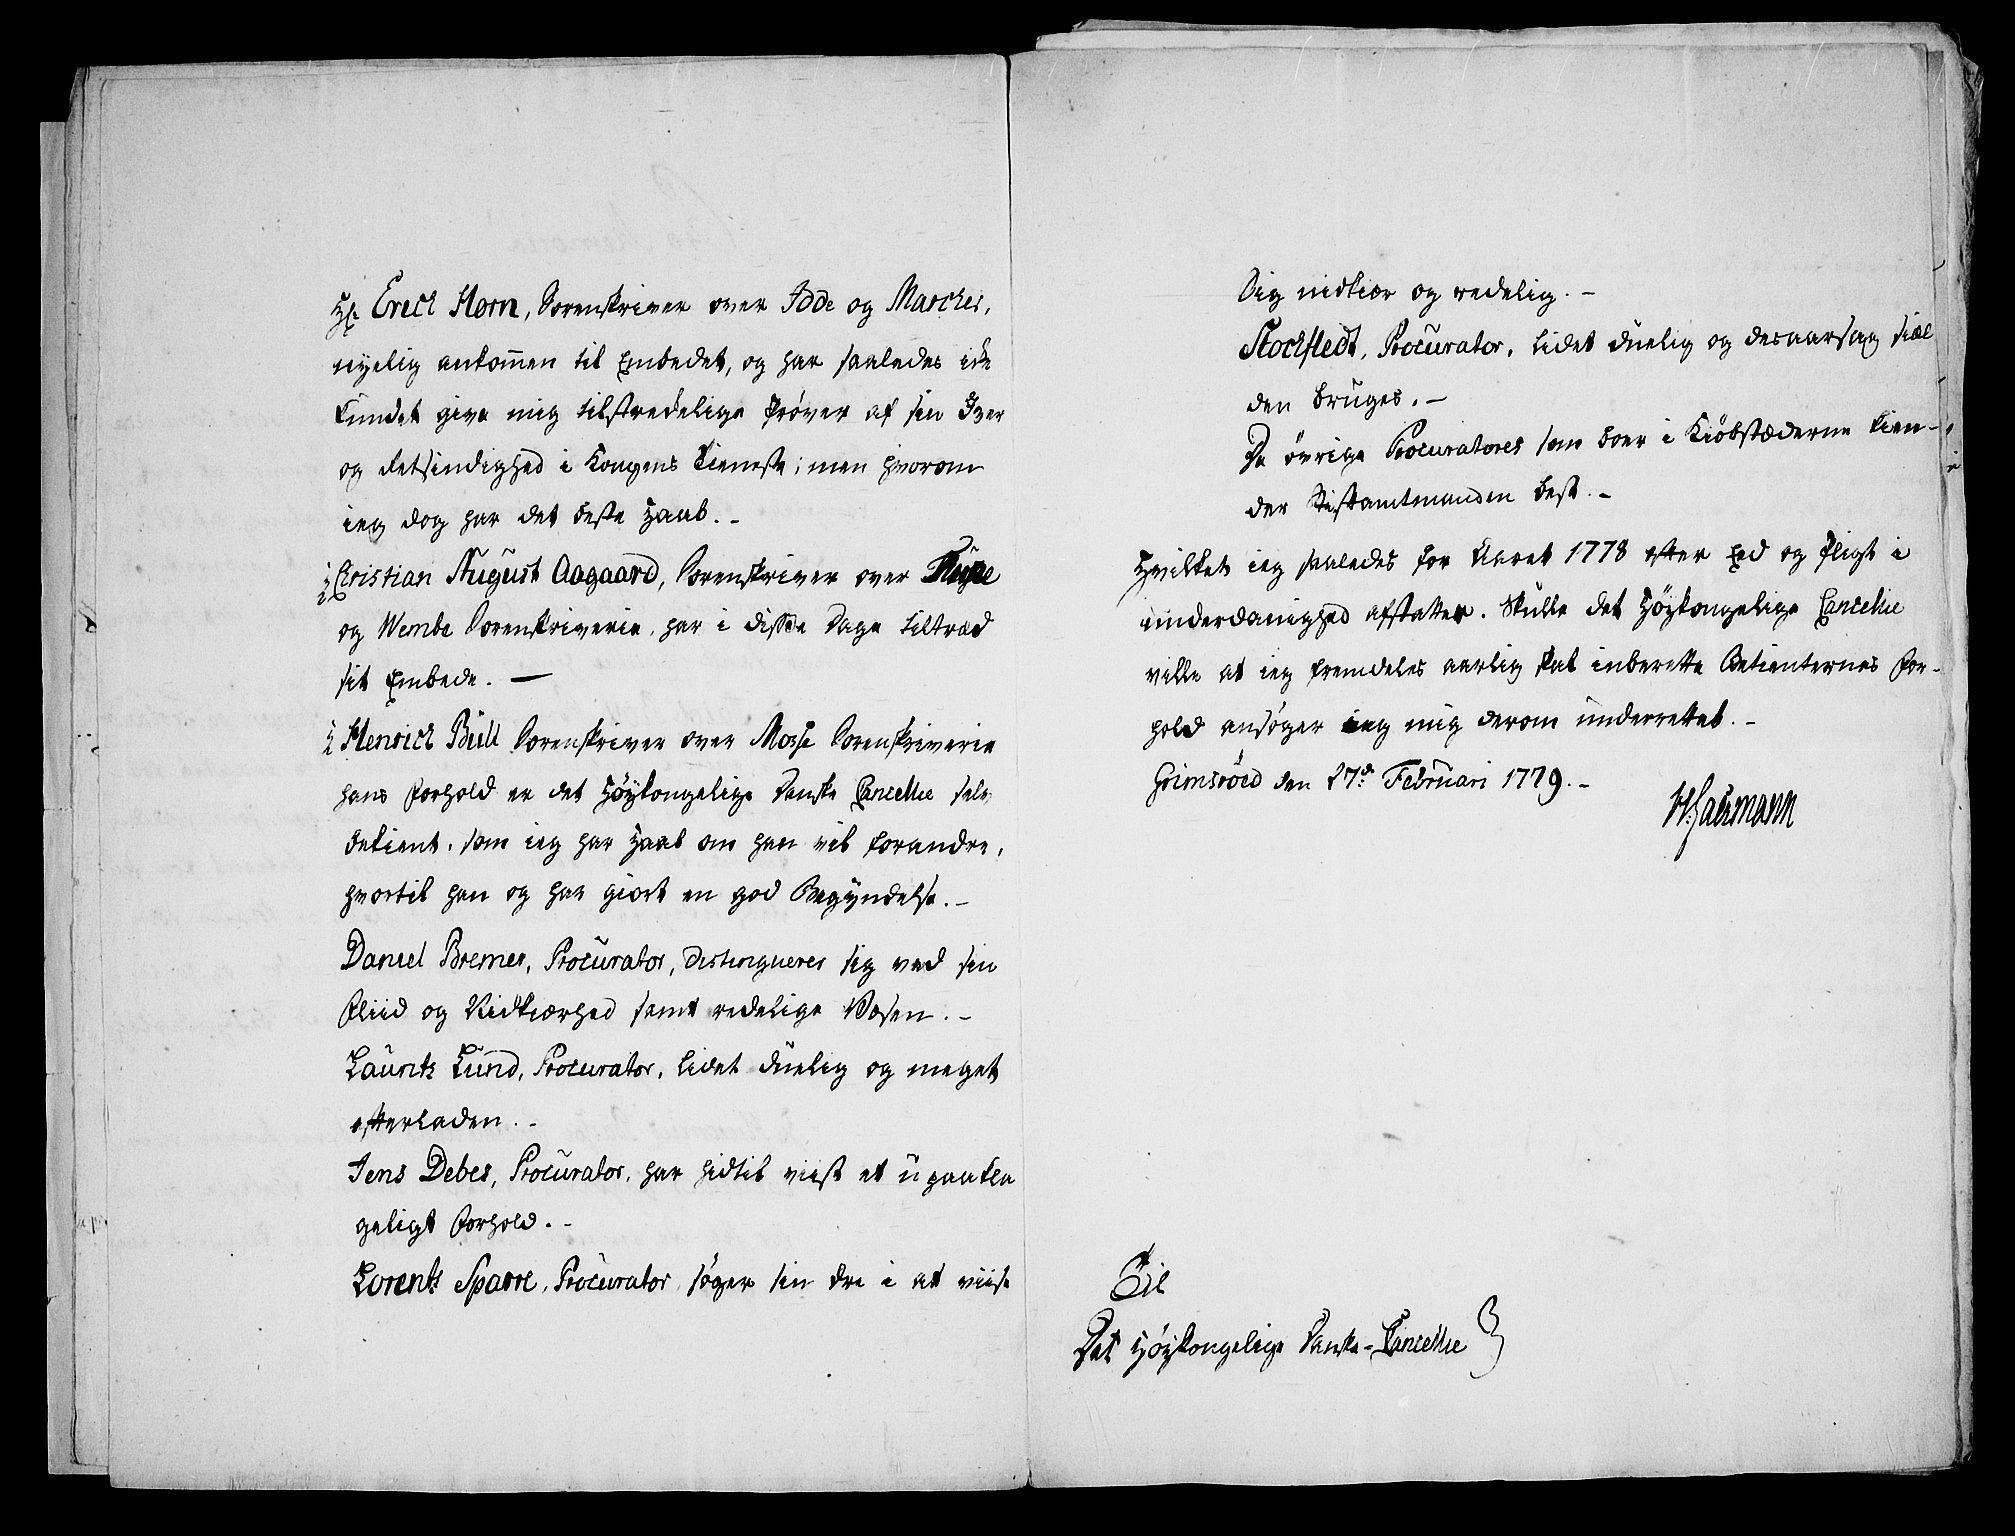 Hr. Erich Horn, Sorenskriver over Idde og Marcher,
nyelig ankommen til Embedet, og har saaledes icke
kundet give mig tilstrekelige Prøver af sin Iver
og Retsindighed i Kongens Tieneste; men hvorom
ieg dog har det beste Haab. –
Christian August Aagaard, Sorenskriver over
og Wembe Sorenskriverie, har i disse Dage tiltræd
sit Embede. —
Henrich Büll Sorenskriver over Mosse Sorenskriverie
hans Forhold er det Høykongelige Danske Cancellie selv
bekient, som ieg har Haab om han vil forandre,
hvortil han og har giort en god Begyndelse. –
Daniel Bremer, Procurator, distingverer sig ved sin
Fliid og Nidkiærhed samt redelige Væsen. –
Lauritz Lund, Procurator, lidet duelig og meget
efterladen. –
Jens Debes, Procurator, har hidtil viist et upaakla
geligt Forhold. –
Lorentz Sparre, Procurator, søger sin Ære i at viise
Sig nidkiær og redelig. –
Stockfledt, Procurator, lidet duelig og desaarsag siæl
den bruges. –
De øvrige Procuratores som boer i Kiøbstæderne kien-
der Stiftamtmanden best. –
Hvilket ieg saaledes for Aaret 1778 efter Eed og Pligt i
underdanighed afstatter. Skulle det Høykongelige Cancellie
ville at ieg fremdeles aarlig skal inberette Betienternes For-
hold ansøger ieg mig derom underrettet. –
Grimsröed den 27de Februari 1779. –
Til
Det Høykongelige Danske-Cancellie